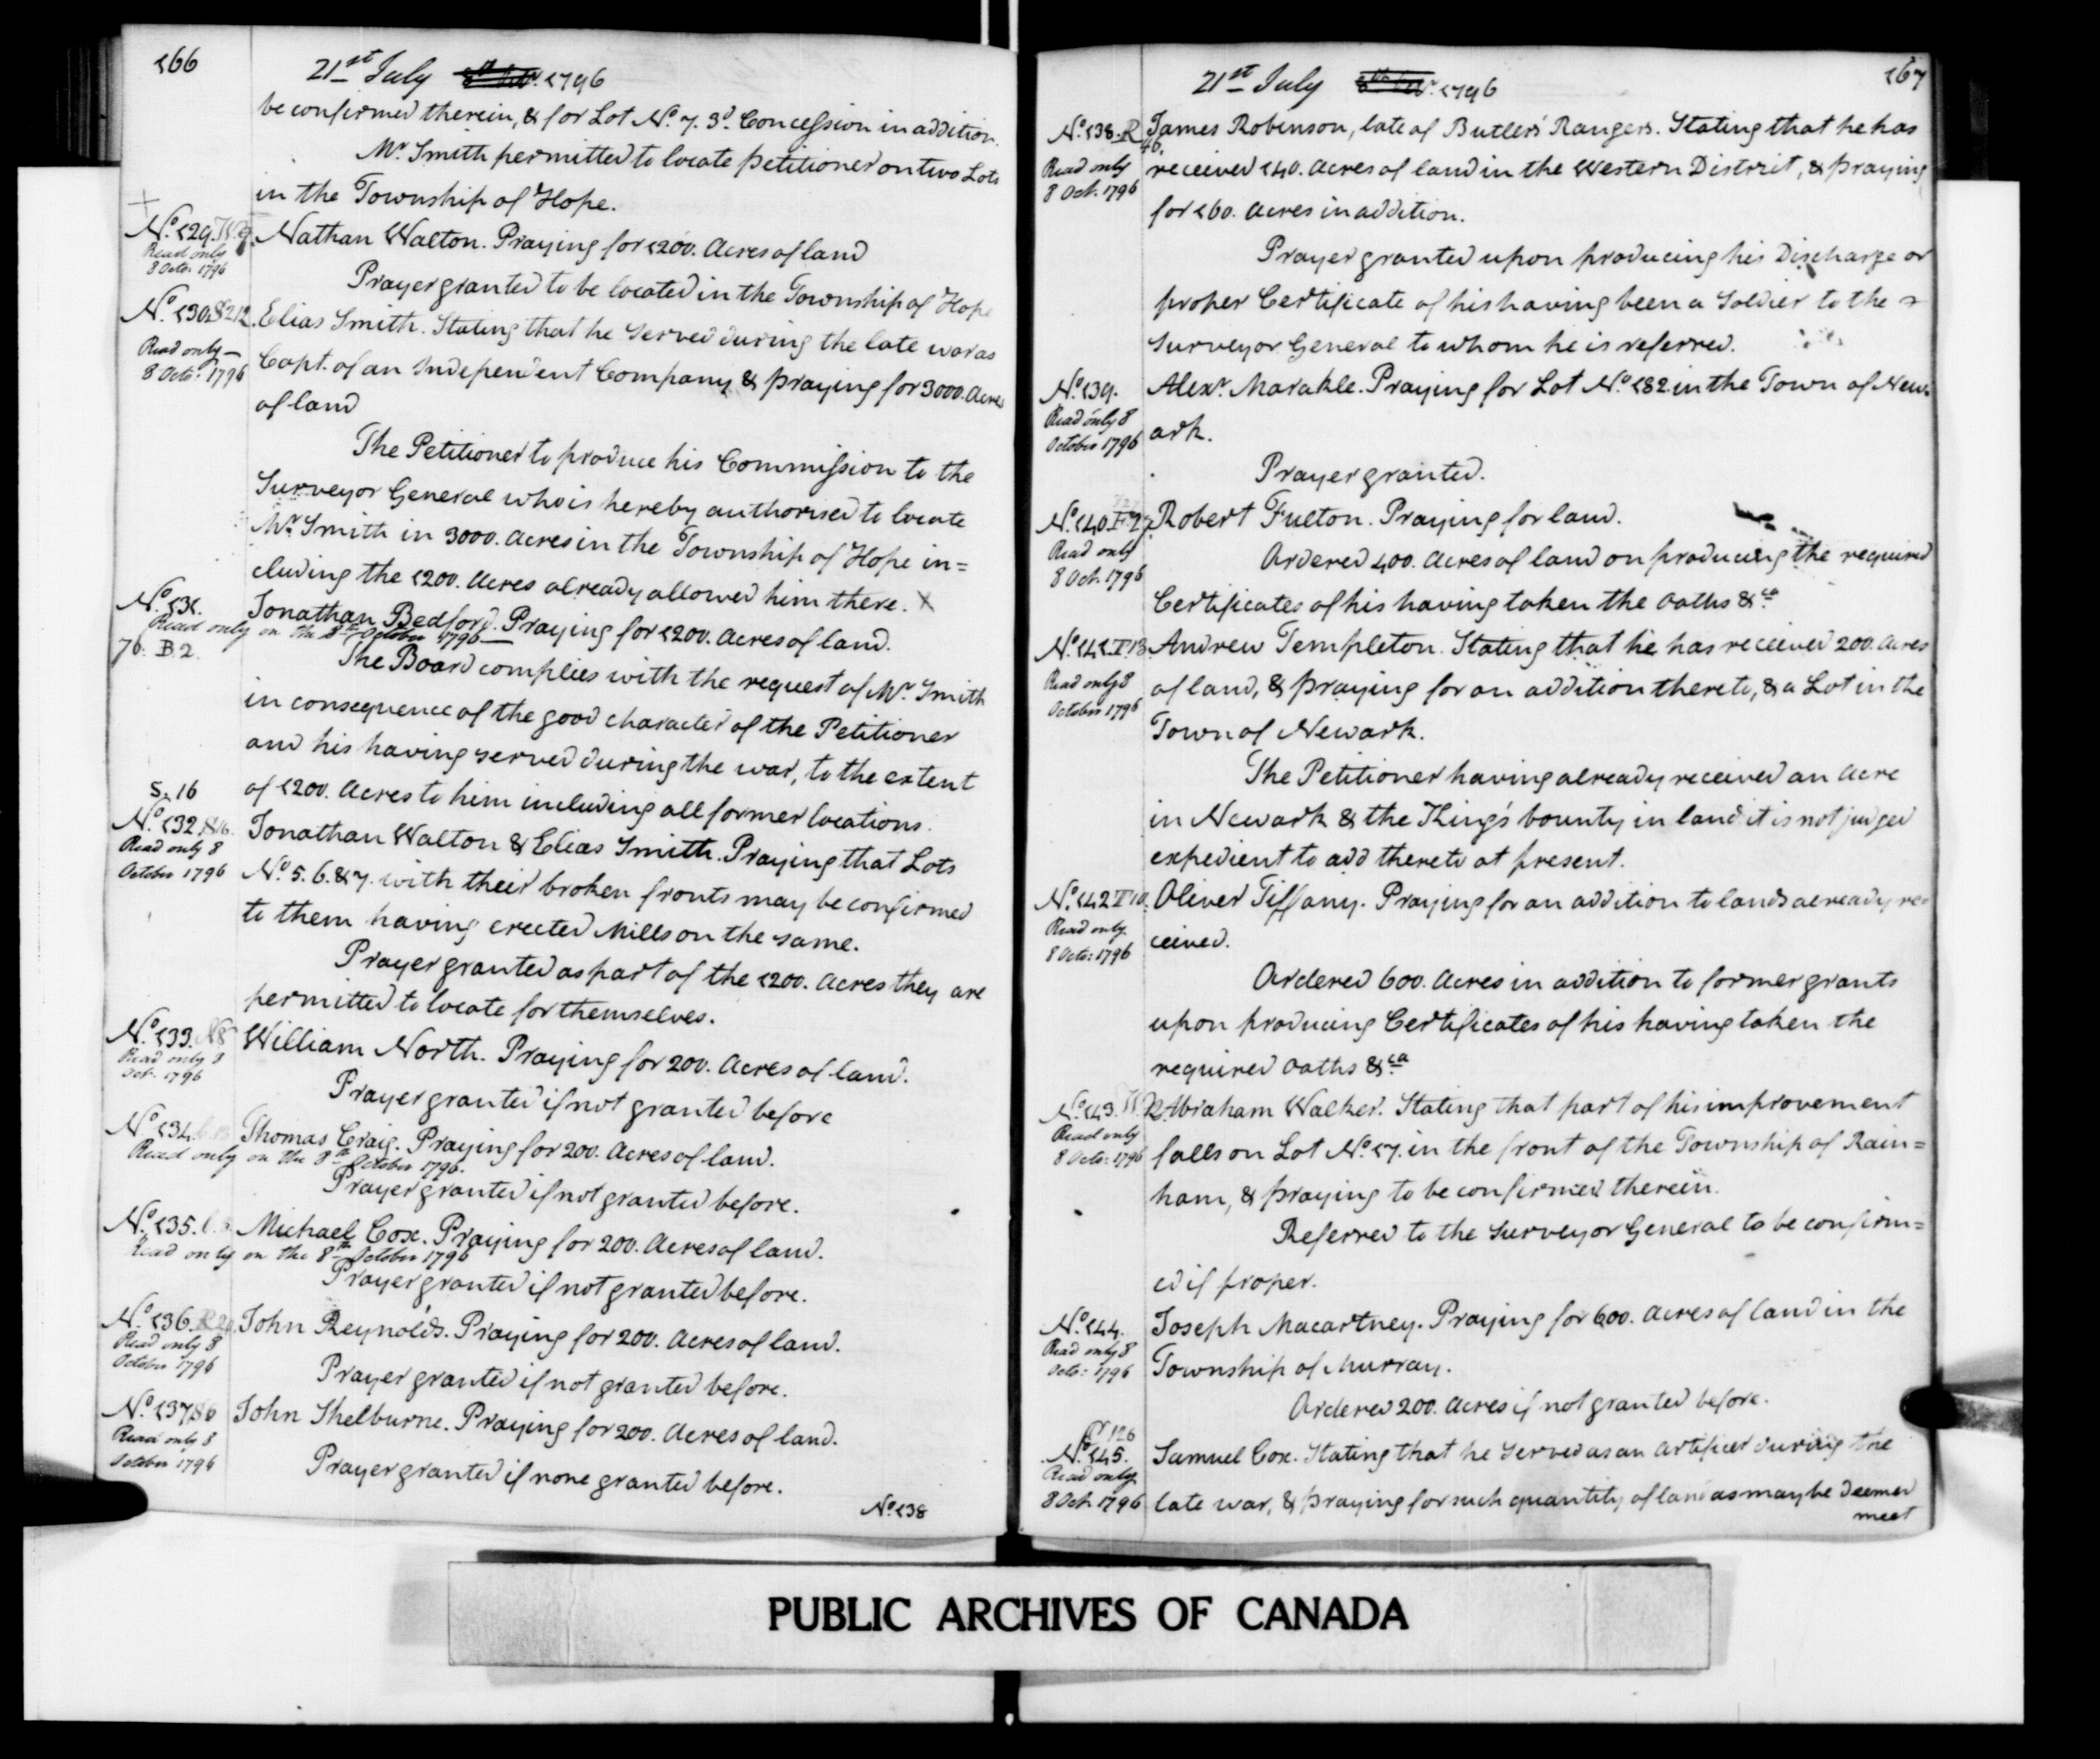 166
21st July 8th Octr. 1796
be confirmed therein, & for Lot No. 7. 3d. Concession in addition.
Mr. Smith permitted to locate petitioner on two Lots
in the Township of Hope.
No. 129. W.
Read only
8 Octr. 1796
Nathan Walton. Praying for 1200. Acres of land
Prayer granted to be located in the Township of Hope
No. 130. S212.
Read only —
8 Octr: 1796
Elias Smith. Stating that he served during the late war as
Capt. of an Independent Company & praying for 3000. Acres
of land
The Petitioner to produce his Commission to the
Surveyor General who is hereby authorised to locate
Mr. Smith in 3000. Acres in the Township of Hope in=
cluding the 1200. Acres already allowed him there. X
No. 131.
76. B.2.
Jonathan Bedford. Praying for 1200. Acres of land.
Read only on the 8th October 1796 —
The Board complies with the request of Mr. Smith
in consequence of the good character of the Petitioner
and his having served during the war, to the extent
of 1200. Acres to him including all former locations.
S. 16
No. 132. S16.
Read only 8
October 1796
Jonathan Walton & Elias Smith. Praying that Lots
No. 5. 6. & 7. with their broken fronts may be confirmed
to them having erected Mills on the same.
Prayer granted as part of the 1200. Acres they are
permitted to locate for themselves.
No. 133. N8
Read only 8
Oct. 1796
William North. Praying for 200. Acres of land.
Prayer granted if not granted before
No. 134.
Thomas Craig. Praying for 200. Acres of land.
Read only on the 8th October 1796.
Prayer granted if not granted before.
No. 135.
Michael Cox. Praying for 200. Acres of land.
Read only on the 8th October 1796
Prayer granted if not granted before.
No. 136. R20.
Read only 8
October 1796
John Reynolds. Praying for 200. Acres of land.
Prayer granted if not granted before.
No. 137. S6
Read only 8
October 1796
John Shelburne. Praying for 200. Acres of land.
Prayer granted if none granted before.
No. 138
167
21st July 8th Octr. 1796
No. 138. R
46.
Read only
8 Oct. 1796
James Robinson, late of Butler's Rangers. Stating that he has
received 140. Acres of land in the Western District, & praying
for 160. Acres in addition.
Prayer granted upon producing his Discharge or
proper Certificate of his having been a Soldier to the
Surveyor General to whom he is referred.
No. 139.
Read only 8
October 1796
Alexr. Marakle. Praying for Lot No. 182 in the Town of New=
ark.
Prayer granted.
No. 140. F.7.
Read only
8 Oct. 1796
Robert Fulton. Praying for land.
Ordered 400. Acres of land on producing the required
Certificates of his having taken the Oaths &ca
No. 141. T.13.
Read only 8
October 1796
Andrew Templeton. Stating that he has received 200. Acres
of land, & praying for an addition thereto, & a Lot in the
Town of Newark.
The Petitioner having already received an Acre
in Newark & the King's bounty in land it is not judged
expedient to add thereto at present.
No. 142 T10.
Read only
8 Octr: 1796
Oliver Tiffany. Praying for an addition to lands already re=
ceived.
Ordered 600. Acres in addition to former grants
upon producing Certificates of his having taken the
required Oaths &ca
No. 143. W12.
Read only
8 Octr: 1796
Abraham Walker. Stating that part of his improvement
falls on Lot No. 17. in the front of the Township of Rain=
ham, & praying to be confirmed therein.
Referred to the Surveyor General to be confirm=
ed if proper.
No. 144.
Read only 8
Octr: 1796
Joseph Macartney. Praying for 600. Acres of land in the
Township of Murray.
Ordered 200. Acres if not granted before.
C 126
No. 145.
Read only
8 Oct. 1796
Samuel Cox. Stating that he served as an Artificer during the
late war, & praying for such quantity of land as may be deemed
meet
PUBLIC ARCHIVES OF CANADA